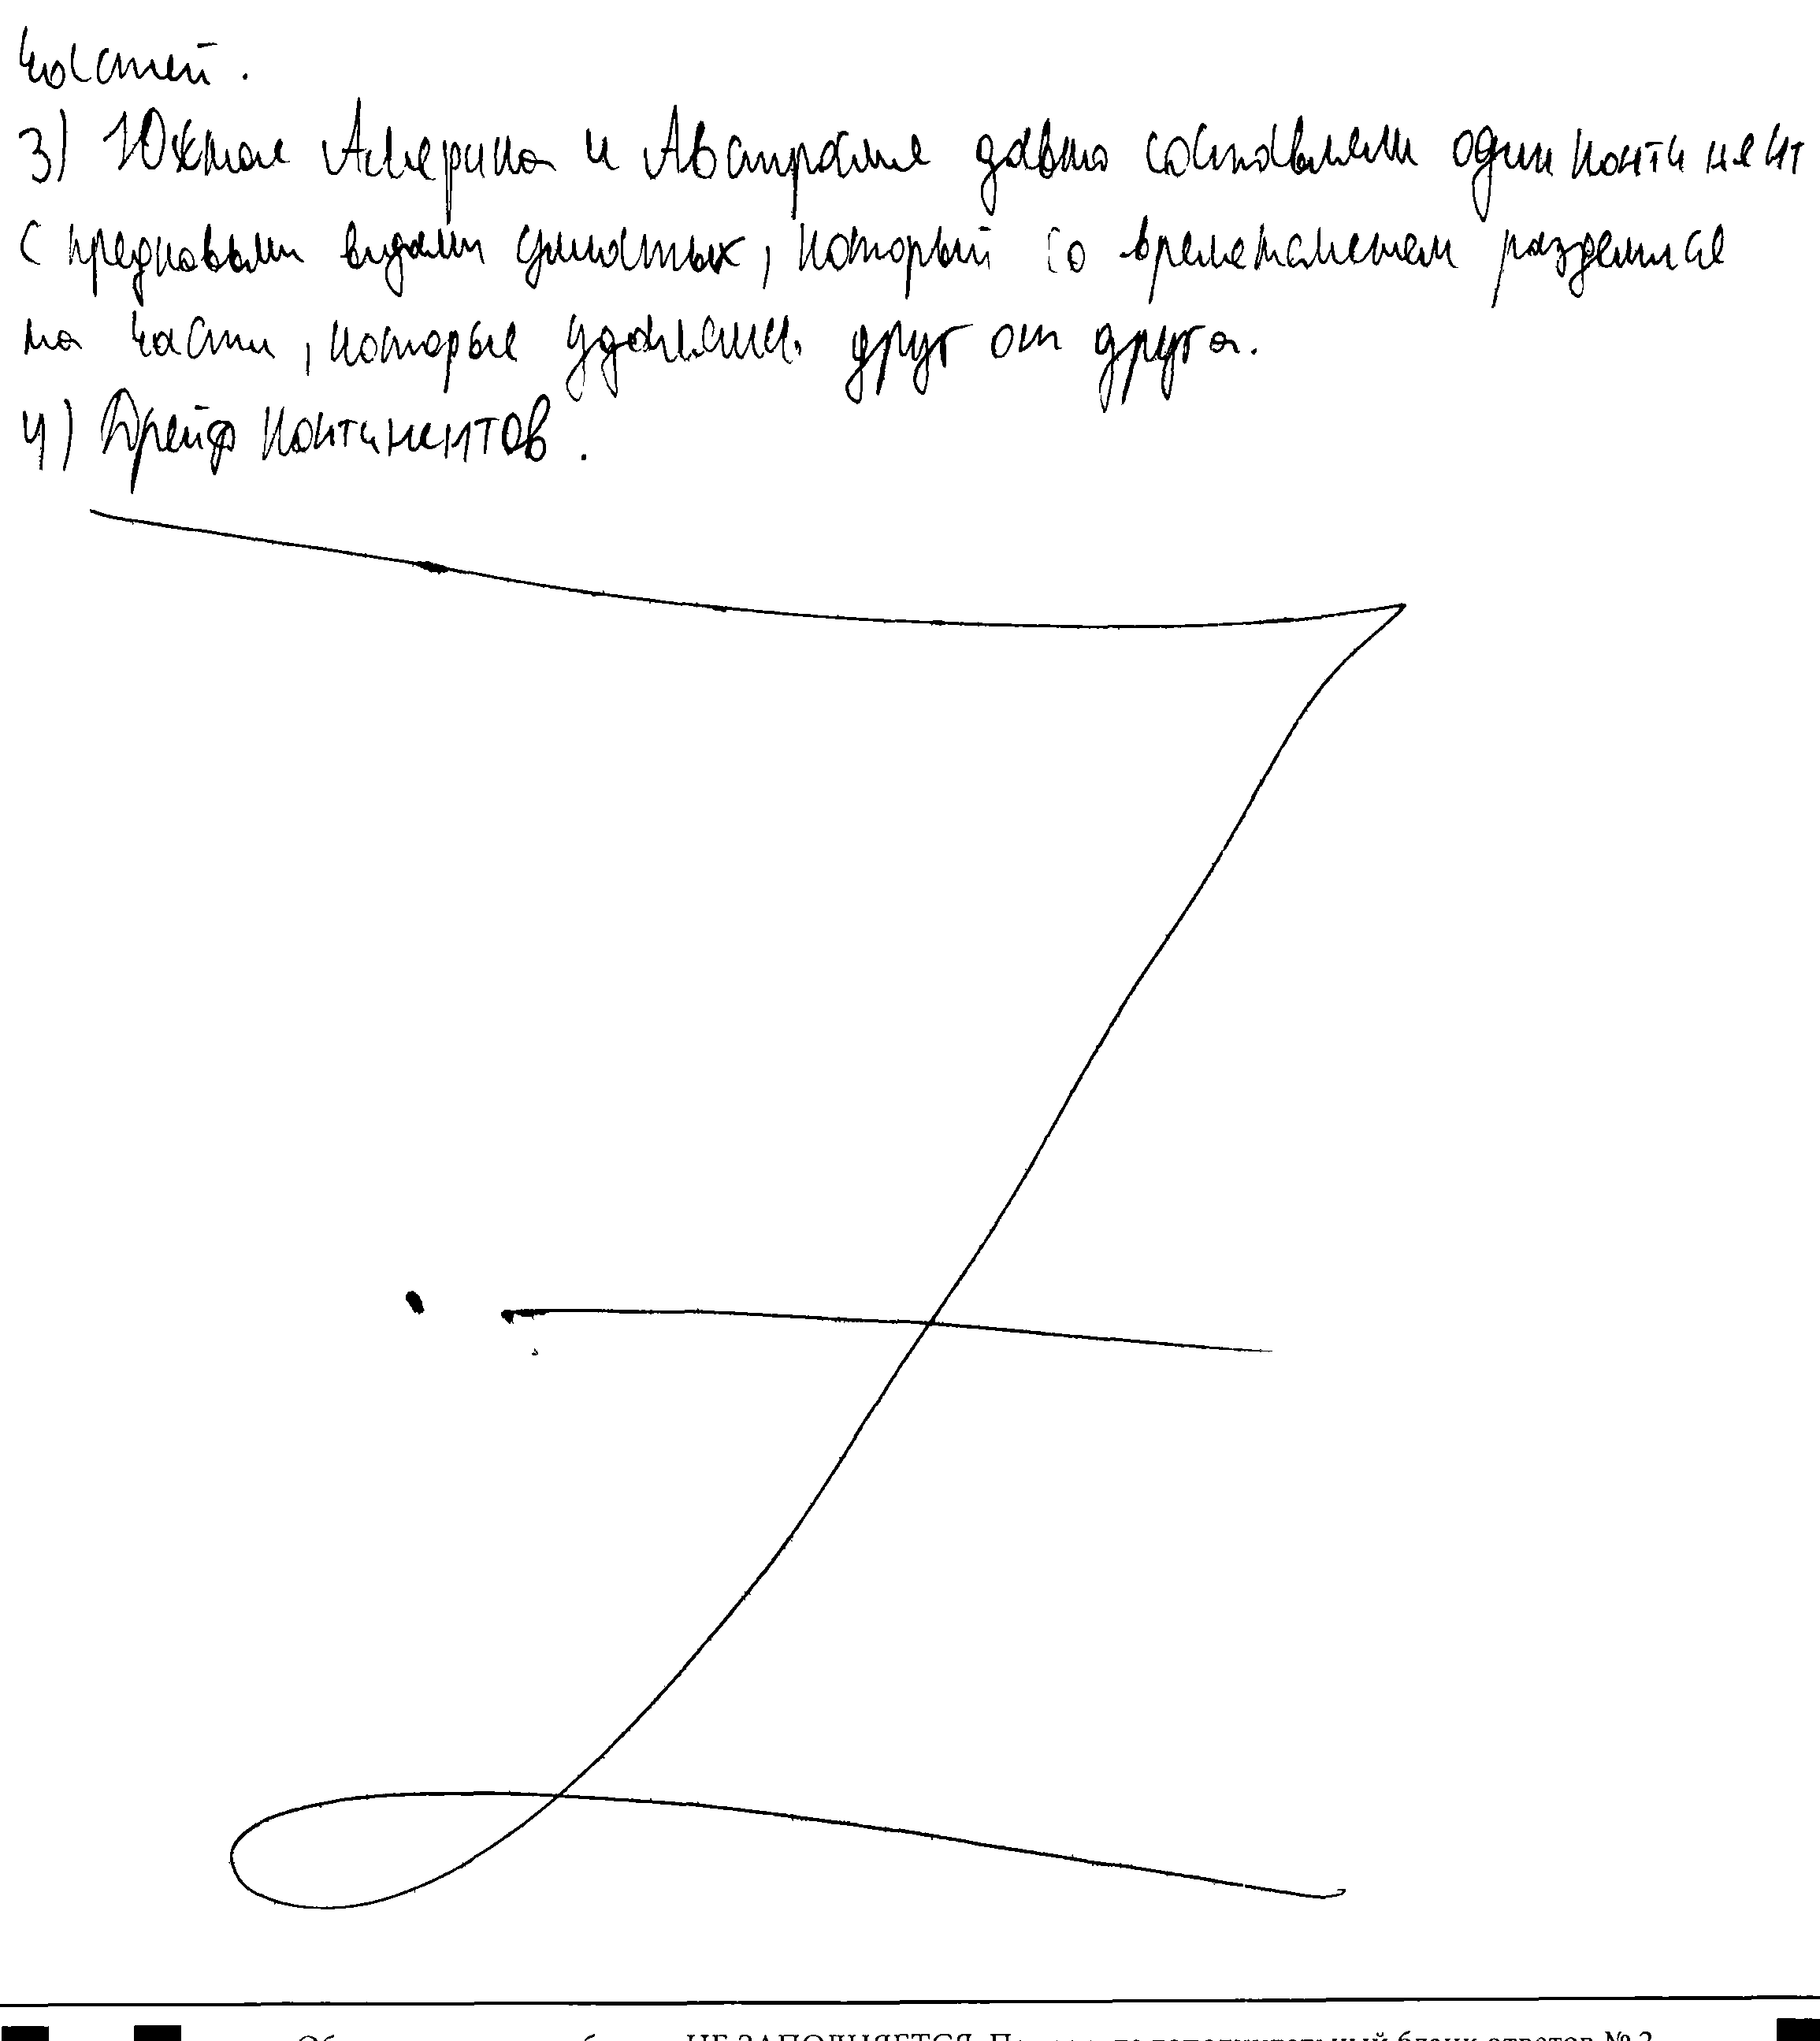 частей.
3) Южная Америка и Австралия давно составляли один континент
с предковыми видами сумчатых, который со временем разделился
на части, которые удалялись друг от друга.
4) Дрейф континентов.
НЕ ЗАПОЛНЯЕТСЯ. бланк ответов № 2